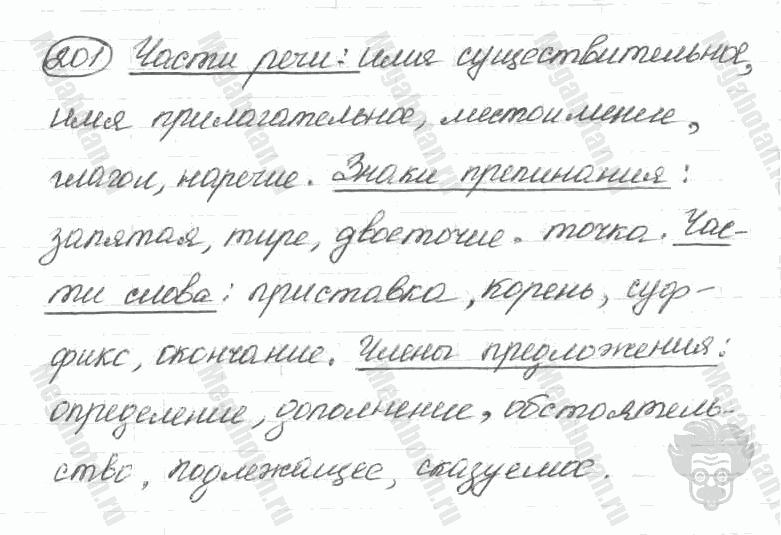 201 Части речи: имя существительное,
имя прилагательное, местоимение,
глагол, наречие. Знаки препинания:
запятая, тире, двоеточие. точка. Час-
ти слова: приставка, корень, суф-
фикс, окончание. Члены предложения:
определение, дополнение, обстоятель-
ство, подлежащее, сказуемое.